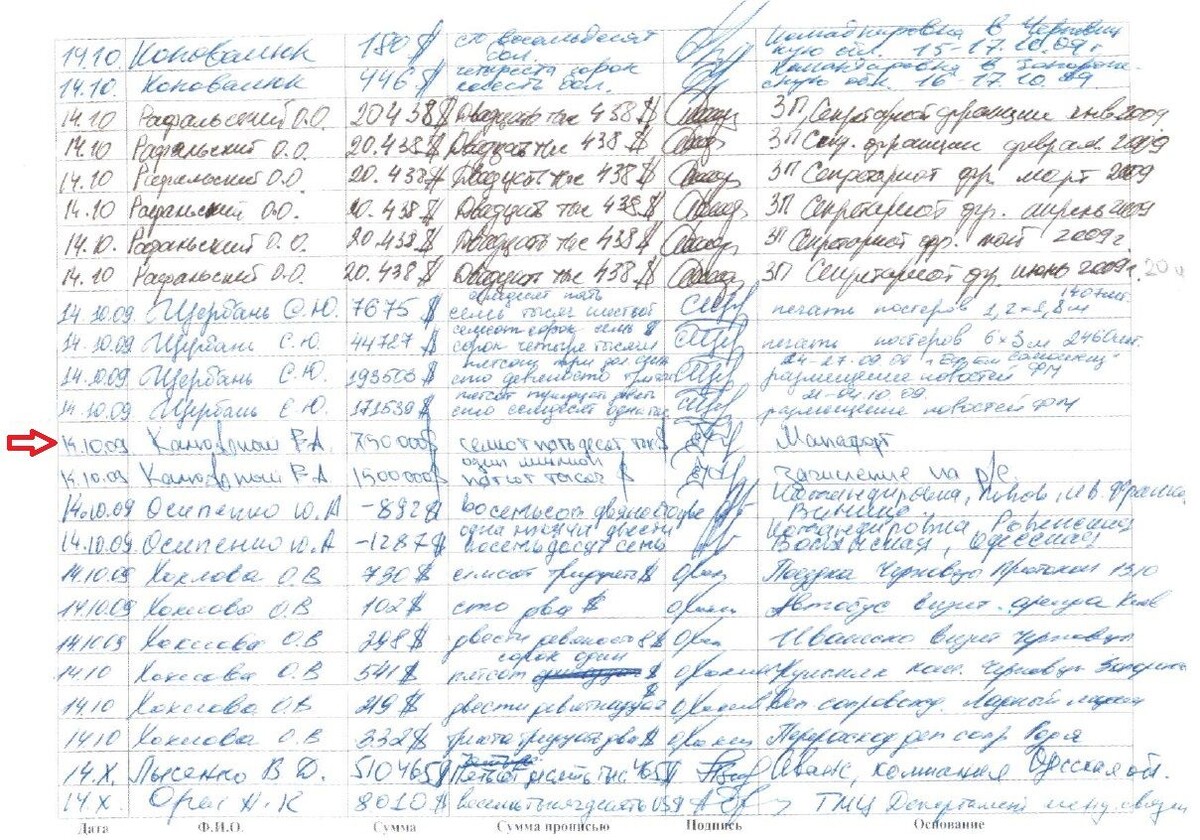 14.10 Коновалюк 180 $ сто восемьдесят дол. Командировка в Черновиц кую обл. 15-17.10.09 г
14.10. Коновалюк 446 $ четыреста сорок шесть дол. Командировка в Запорож- скую обл. 16 17.10.09
14.10 Рафальский О.О. 20438 $ Двадцать тыс 438 $ ЗП, Секретариат фракции янв 2009
14.10 Рафальский О.О. 20.438 $ Двадцать тыс 438 $ ЗП Секр. фракции феврал. 2009
14.10 Рафальский О.О. 20.438 $ Двадцать тыс 438 $ ЗП Секретариат фр. март 2009
14.10 Рафальский О.О. 20.438 $ Двадцать тыс 438 $ ЗП Секретариат фр. апрель 2009
14.10. Рафальский О.О. 20.438 $ Двадцать тыс 438 $ ЗП Секретариат фр. май 2009 г.
14.10 Рафальский О.О. 20.438 $ Двадцать тыс 438 $ ЗП Секретариат фр. июнь 2009 г.
14.10.09 Щербань С.Ю. 7675 $ семь тысяч шестьсот пять печать постеров 1,2×1,8 м
14.10.09 Щербань С.Ю. 44727 $ сорок четыре тысячи печать постеров 6×3 м 2460 шт.
14.10.09 Щербань С.Ю. 193503 $ сто девяносто размещение новостей
14.10.09 Щербань С.Ю. 171539 $ сто семьдесят одна тыс размещение новостей
14.10.09 Каморный В.А. 750000 $ семсот пятьдесят тыс $ Манафорт
14.10.09 Каморный В.А. 1500000 $ один миллион пятсот тысяч $ Зачисление на р/с
14.10.09 Осипенко Ю.А -892 $ восемьсот девяносто две Командировка, Львов, Ив. Франко, Винница
14.10.09 Осипенко Ю.А -1287 $ одна тысяча двести восемьдесят семь Командировка, Ровенская Волынская, Одесская
14.10.09 Хохлова О.В 730 $ семсот тридцать $ Поездка Черновцы Протокол 13.10
14.10.09 Хохлова О.В 102 $ сто два $ Автобус визит аренда Киев
14.10.09 Хохлова О.В 298 $ двести девяносто 8 $ визит Черновцы
14.10 Хохлова О.В 541 $ пятсот сорок один $ Черновцы
14.10 Хохлова О.В 219 $ двести девятнадцать $ сопровожд.
14.10 Хохлова О.В 332 $ триста тридцать два $
14.X. Лысенко В Д. 510465 $ Пятсот десять тыс 465 $ Аванс, компания Одесская обл.
14.X. 8010 $ восемь тысяч десять USD ТМЦ Департамент
Дата Ф.И.О. Сумма Сумма прописью Подпись Основание